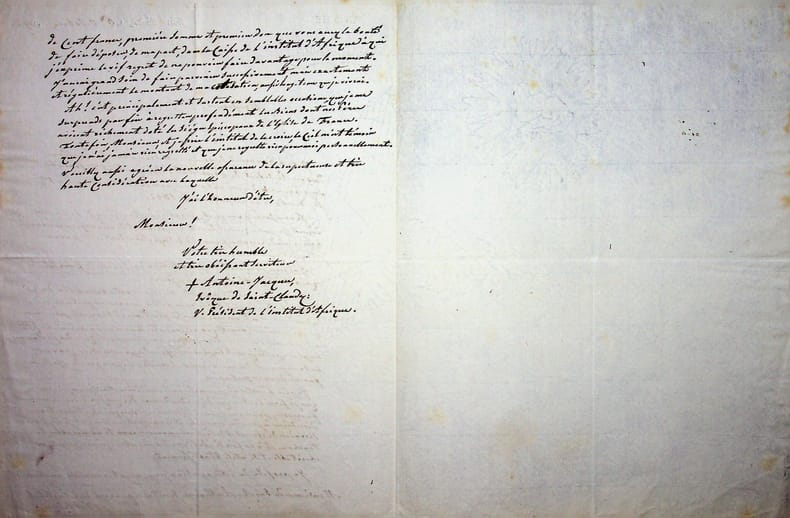 de Cent francs, première somme et premier don que vous aurez la bonté
de faire déposer de ma part, dans la Caisse de l'institut d'Afrique à qui
j'exprime le vif regret de ne pouvoir faire davantage pour le moment.
J'aurai grand soin de faire parvenir successivement mais exactement
et régulièrement le montant de ma cotisation aussi longtems que je vivrai.
Ah! c'est principalement et surtout en semblables occasions que je me
surprends par fois à regretter profondément les biens dont nos Pères
avaient richement doté les Sièges Episcopaux de l'Eglise de France.
Toutefois, Monsieur, et je prie l'institut de le croire, le Ciel m'est témoin
que je n'ai jamais rien regretté et que je ne regrette rien pour moi personnellement.
Veuillez aussi agréer la nouvelle assurance de la respectueuse et très
haute Considération avec laquelle
J'ai l'honneur d'être,
Monsieur!
Votre très humble
et très obéissant serviteur
+ Antoine-Jacques,
Evêque de Saint-Claude;
V. Président de l'institut d'Afrique.